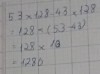 53×128-43×128
=128×(53-43)
=128×10
=1280